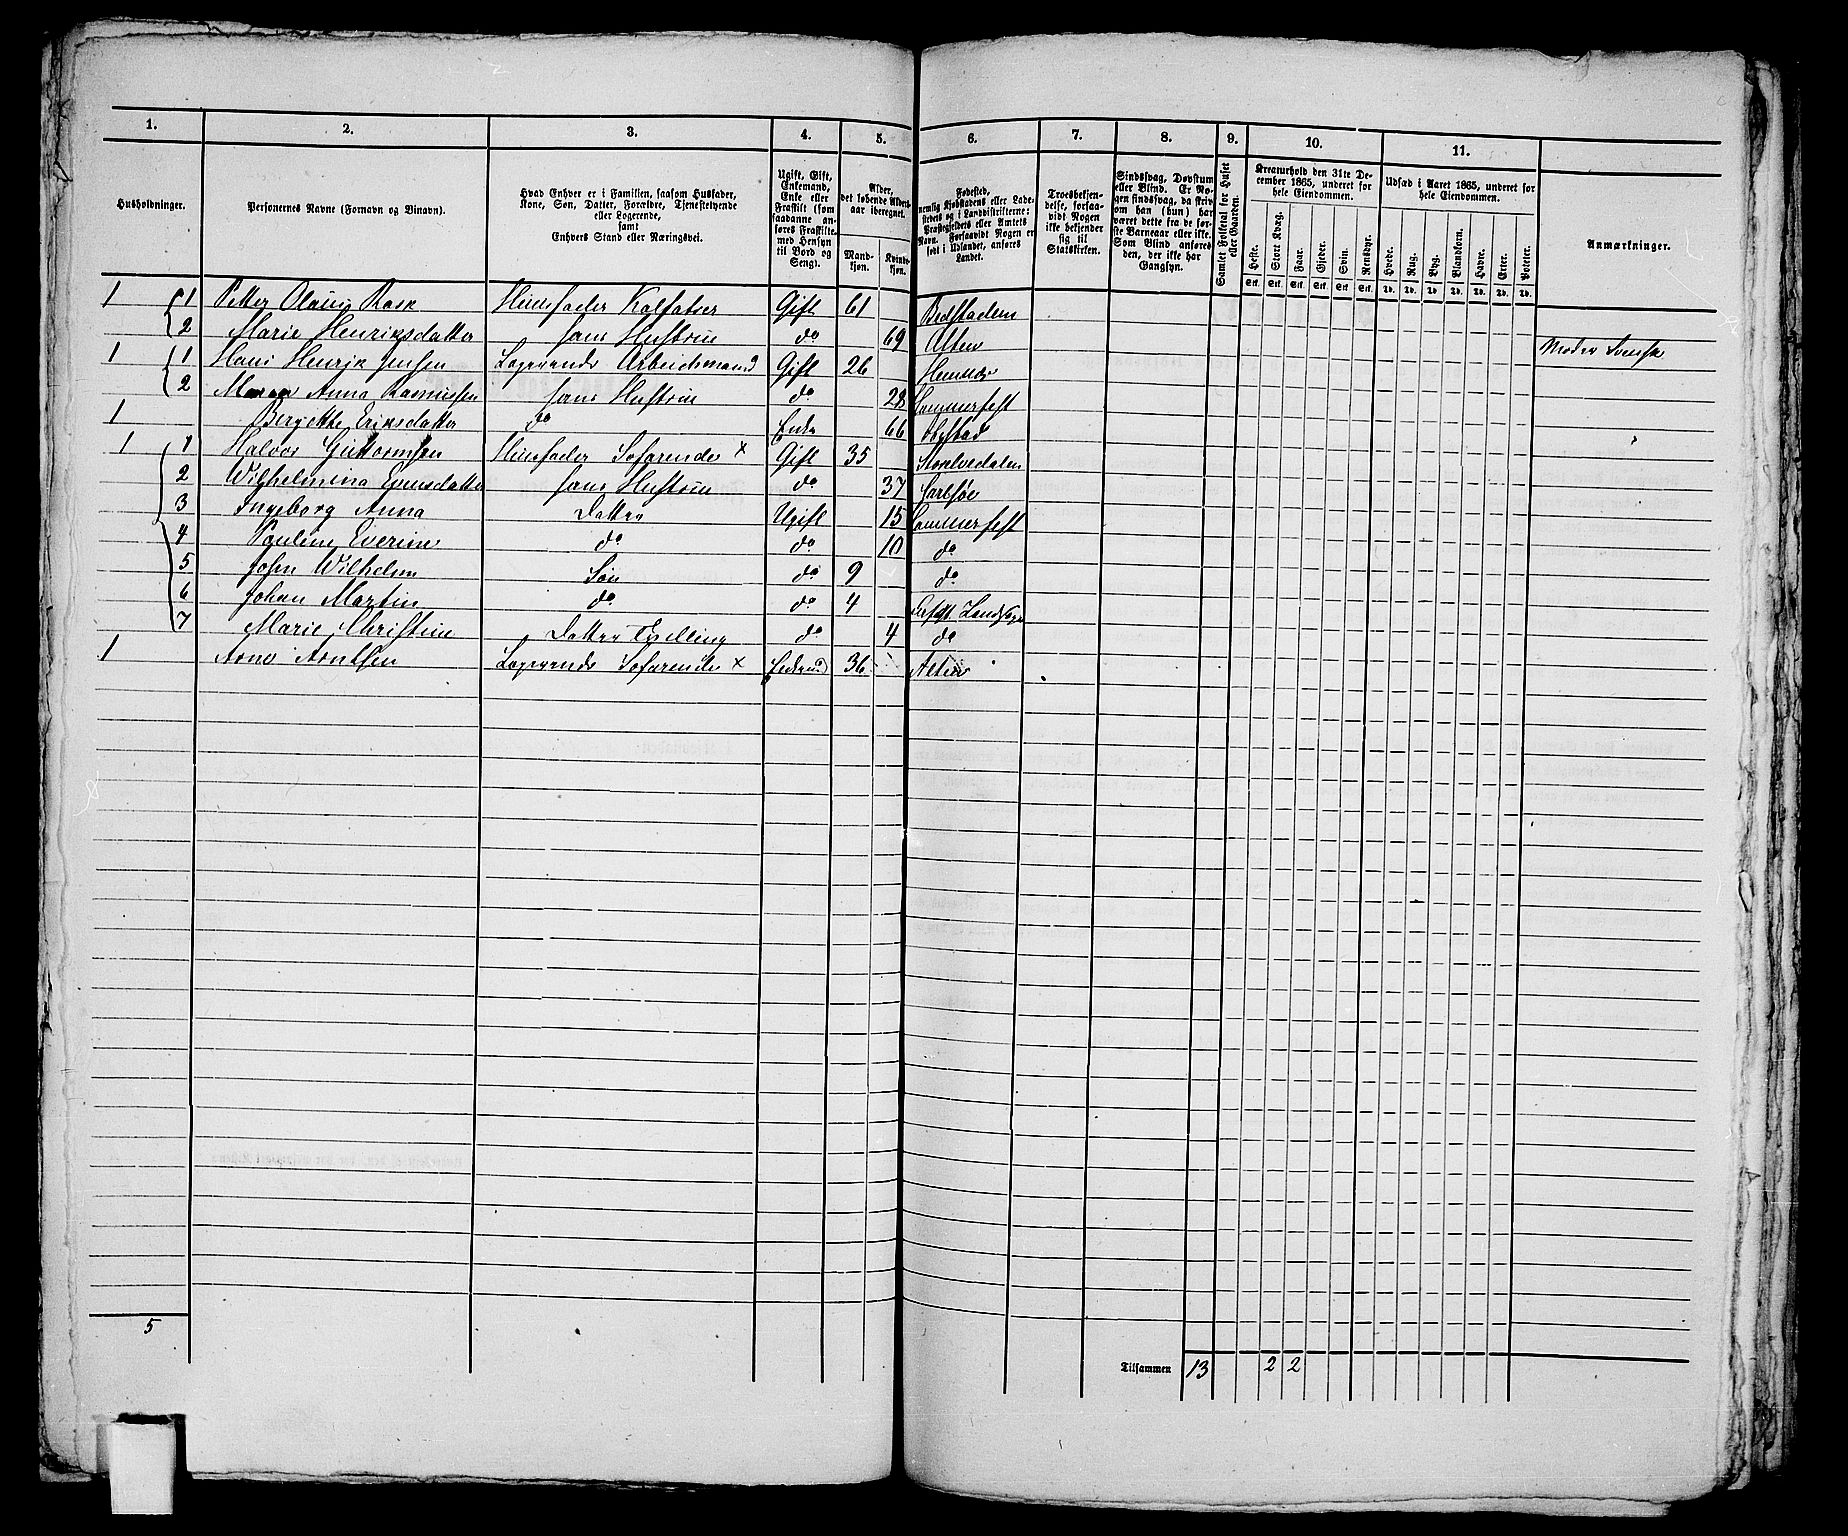 1. 2. 3. 4. 5. 6. 7. 8. 9. 10. 11.
Husholdninger.
Personernes Navne (Fornavn og Binavn).
Hvad Enhver er i Familien, saasom Husfader, Kone, Søn, Datter, Forældre, Tjenestetyende eller Logerende, samt Enhvers Stand eller Næringsvei.
Ugift, Gift, Enkemand, Enke eller Fraskilt (som saadanne anføres Fraskilte med Hensyn til Bord og Seng).
Alder, det løbende Alders-aar iberegnet.
Mand-kjøn.
Kvinde-kjøn.
Fødested, nemlig Kjøbstadens eller Ladestedets og i Landdistrikterne: Præstegjeldets eller Amtets Navn. Forsaavidt Nogen er født i Udlandet, anføres Landet.
Troesbekjendelse, forsaavidt Nogen ikke bekjender sig til Statskirken.
Sindssvag, Døvstum eller Blind. Er Nogen sindssvag, da skrives om han (hun) har været dette fra de første Barneaar eller ikke. Som Blind anføres den, der ikke har Gangsyn.
Samlet Folketal for Huset eller Gaarden.
Kreaturhold den 31te December 1865, underet for hele Eiendommen.
Heste. Stort Kvæg. Faar. Gjeder. Svin. Rensdyr.
Stk. Stk. Stk. Stk. Stk. Stk.
Udsæd i Aaret 1865, underet for hele Eiendommen.
Hvede. Rug. Byg. Blandkorn. Havre. Erter. Poteter.
Td. Td. Td. Td. Td. Td. Td.
Anmærkninger.
1 1 Petter Olaus Rask Huusfader Kalfatrer Gift 61 Bodstaden
2 Marie Henriksdatter hans Hustrue do 69 Alten Moder Svensk
1 1 Hans Henrik Jensen Logerende Arbeidsmand Gift 26
2 Anna Rasmussen hans Hustrue do 28 Hammerfest
1 Bergette Eriksdatter do Enke 66
1 1 Halvor Guttormsen Huusfader Søfarende x Gift 35
2 Wilhelmina Evensdatter hans Hustrue do 37 Carlsøe
3 Ingeborg Anna Datter Ugift 15 Hammerfest
4 Pauline Everine do do 10 do
5 John Wilhelm Søn do 9 do
6 Johan Martin do do 4 Landsogn
7 Marie Christine Datter Tvilling do 4 do
1 Arne Arntsen Logerende Søfarende x Enkemd 36 Alten
5
Tilsammen 13 2 2